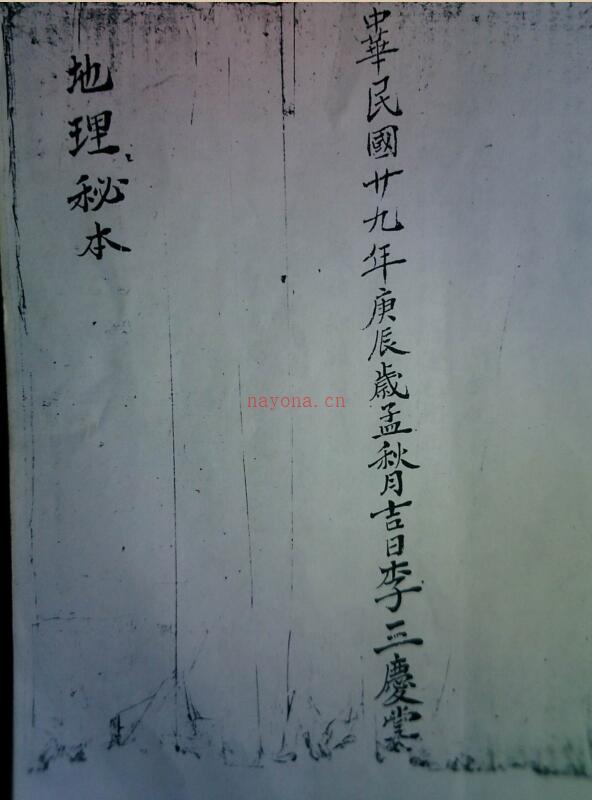 中華民國廿九年庚辰歲孟秋月吉日李三慶堂
地理秘本
nayona.cn